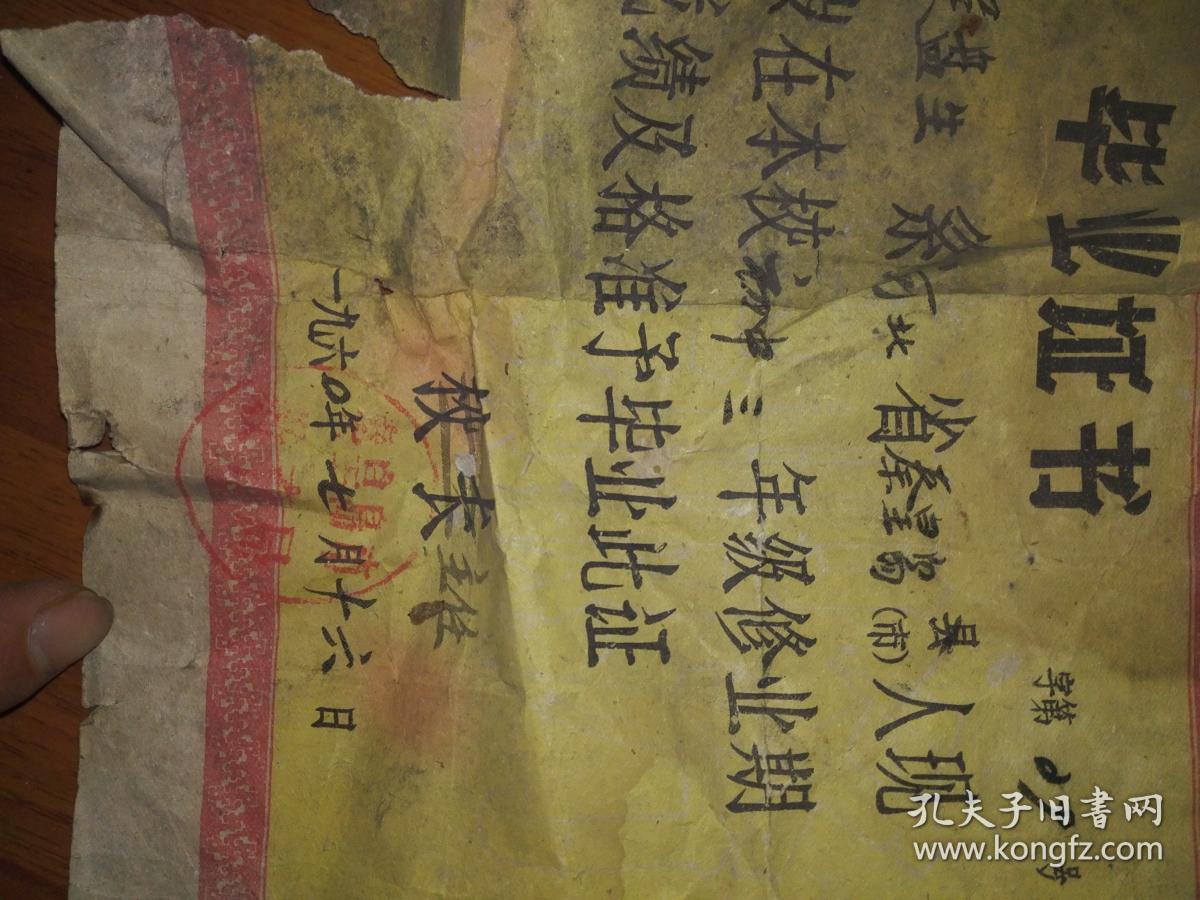 毕业证书
字第 号
生 系河北省秦皇岛县(市)人现
在本校初中三年级修业期
绩及格准予毕业此证
校长
主任
一九六〇年七月十六日
孔夫子旧书网
www.kongfz.com